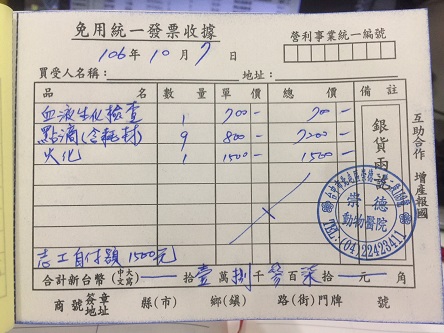 免用統一發票收據
營利事業統一編號
106年10月7日
買受人名稱： 地址：
品名 數量 單價 總價 備註
血液生化檢查 1 700- 700-
點滴(含耗材) 9 800- 7200-
火化 1 1500- 1500-
銀貨兩訖
崇德
動物醫院
TEL:(04)22423411
志工自付額 1500元
合計新台幣(中文大寫) 拾壹萬捌千參百柒拾 元 角
商號簽章地址 縣(市) 鄉(鎮) 路(街)門牌 號
互助合作 增產報國